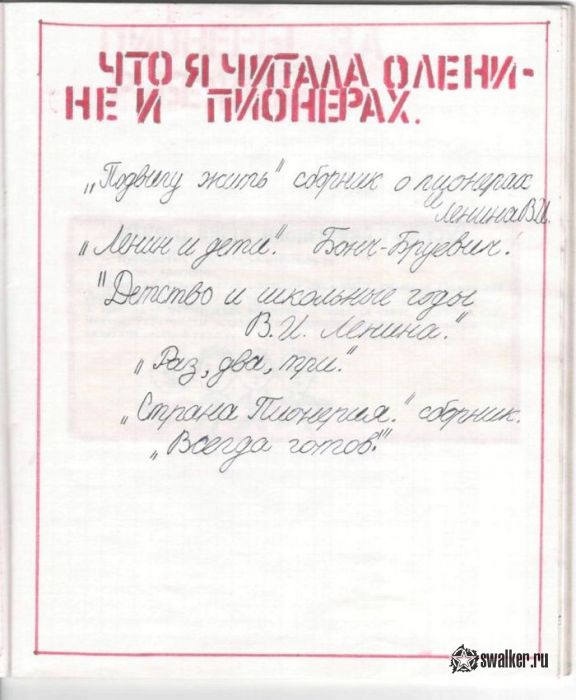 ЧТО Я ЧИТАЛА О ЛЕНИ-
НЕ И ПИОНЕРАХ.
„Подвигу жить" сборник о пионерах
и Ленина В.И.
„Ленин и дети". Бонч-Бруевич.
"Детство и школьные годы
В.И. Ленина."
„Раз, два, три."
„Страна Пионерия." сборник.
„Всегда готов!"
swalker.ru